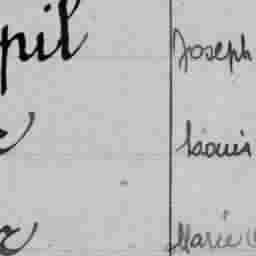 pil Joseph
Louis
Marie